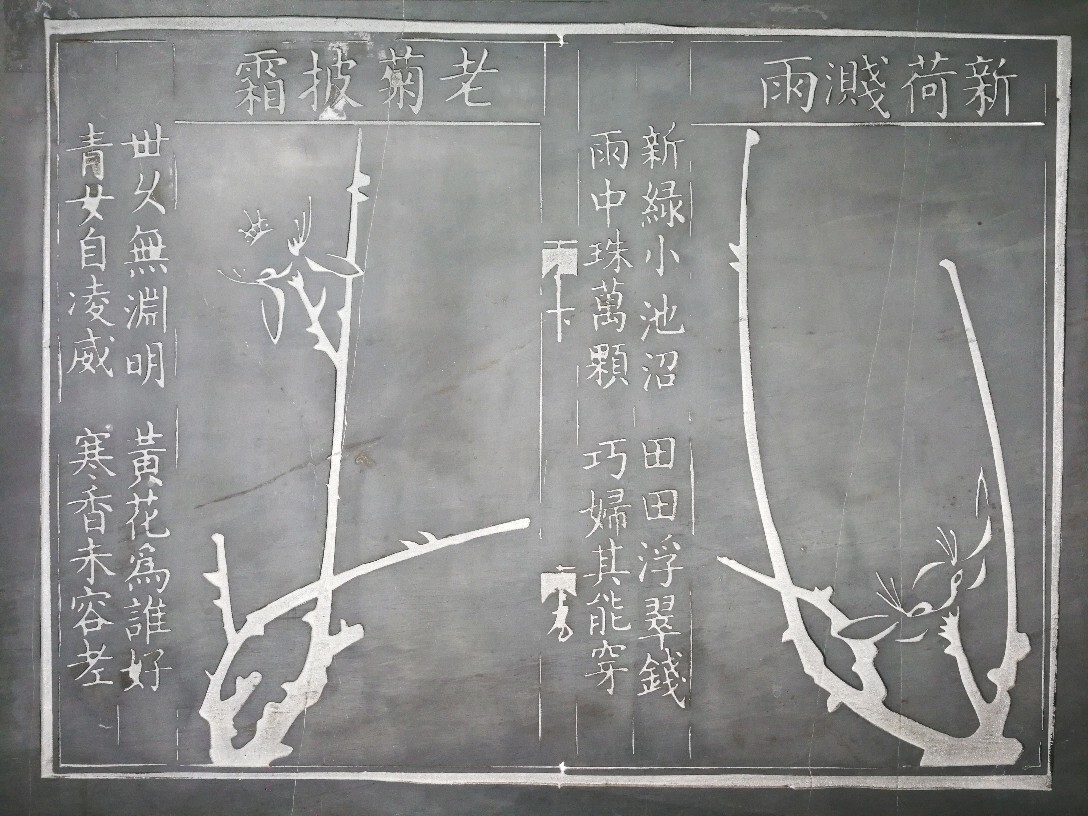 新荷濺雨
新綠小池沼 田田浮翠錢
雨中珠萬顆 巧婦其能穿
下
老菊披霜
世久無淵明 黃花為誰好
青女自凌威 寒香未容老